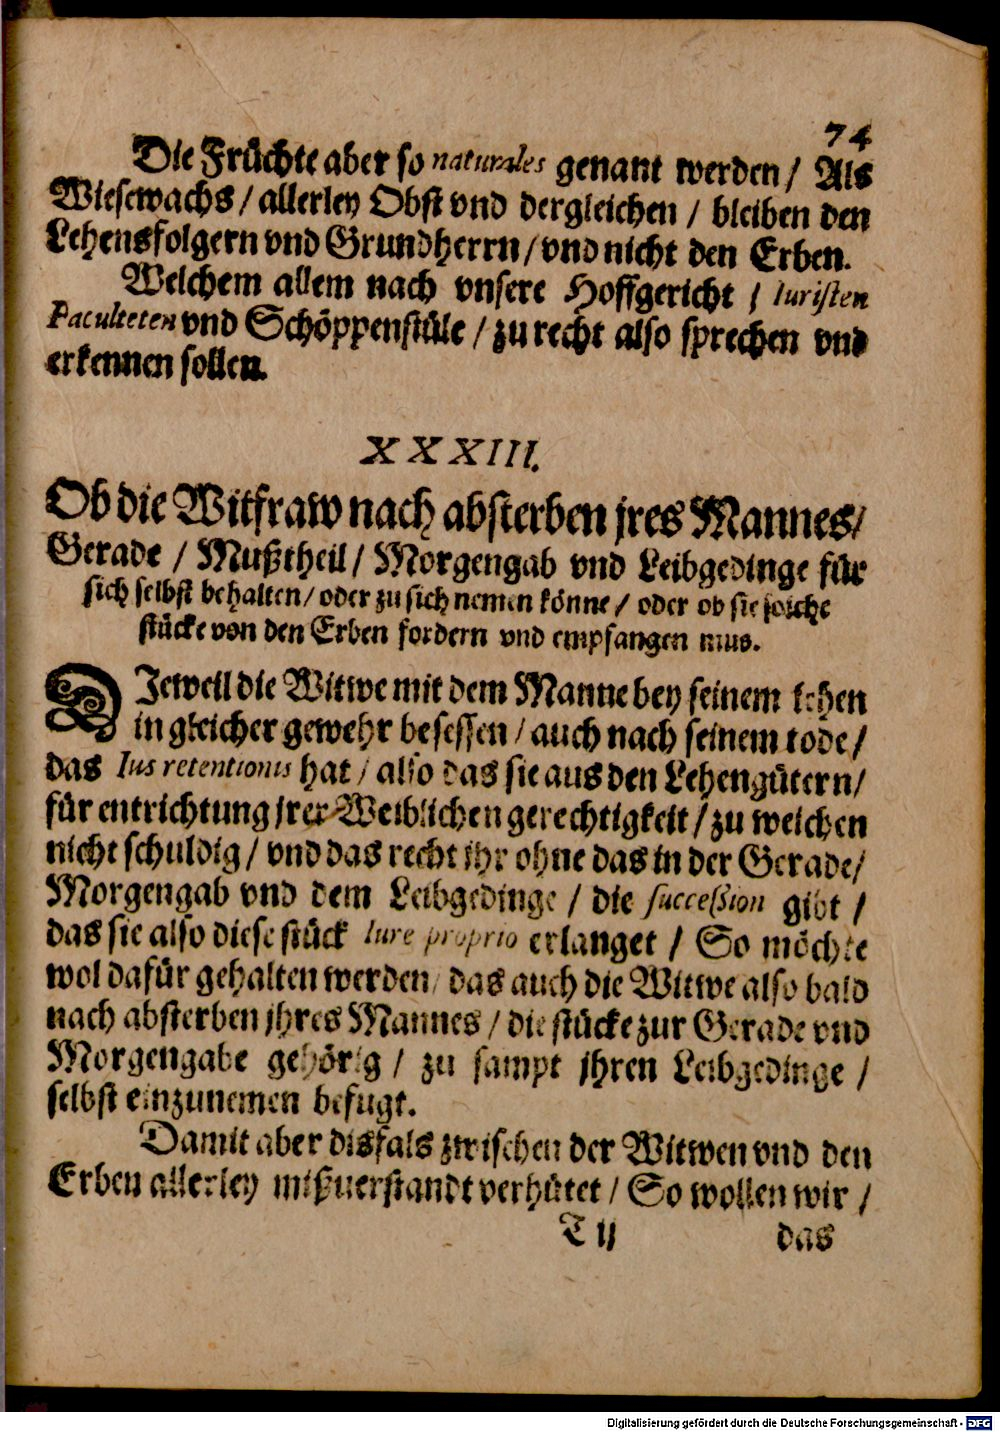 74
Die Früchte aber so naturales genant werden / Als
Wiesewachs / allerley Obst vnd dergleichen / bleiben den
Lehensfolgern vnd Grundherrn / vnd nicht den Erben.
Welchem allem nach vnsere Hoffgericht / Iuristen
Faculteten vnd Schöppenstüle / zu recht also sprechen vnd
erkennen sollen.
XXXIII.
Ob die Witfraw nach absterben jres Mannes /
Gerade / Mußtheil / Morgengab vnd Leibgedinge für
sich selbst behalten / oder zu sich nemen könne / oder ob sie solche
stücke von den Erben fordern vnd empfangen mus.
DJeweil die Witwe mit dem Manne bey seinem leben
in gleicher gewehr besessen / auch nach seinem tode /
das Ius retentionis hat / also das sie aus den Lehengütern /
für entrichtung jrer Weiblichen gerechtigkeit / zu weichen
nicht schuldig / vnd das recht ihr ohne das in der Gerade /
Morgengab vnd dem Leibgedinge / die succeßion gibt /
das sie also diese stück Iure proprio erlanget / So möchte
wol dafür gehalten werden / das auch die Witwe also bald
nach absterben jhres Mannes / die stücke zur Gerade vnd
Morgengabe gehörig / zu sampt jhren Leibgedinge /
selbst einzunemen befugt.
Damit aber disfals zwischen der Witwen vnd den
Erben allerley mißuerstandt verhütet / So wollen wir /
T ij das
Digitalisierung gefördert durch die Deutsche Forschungsgemeinschaft - DFG